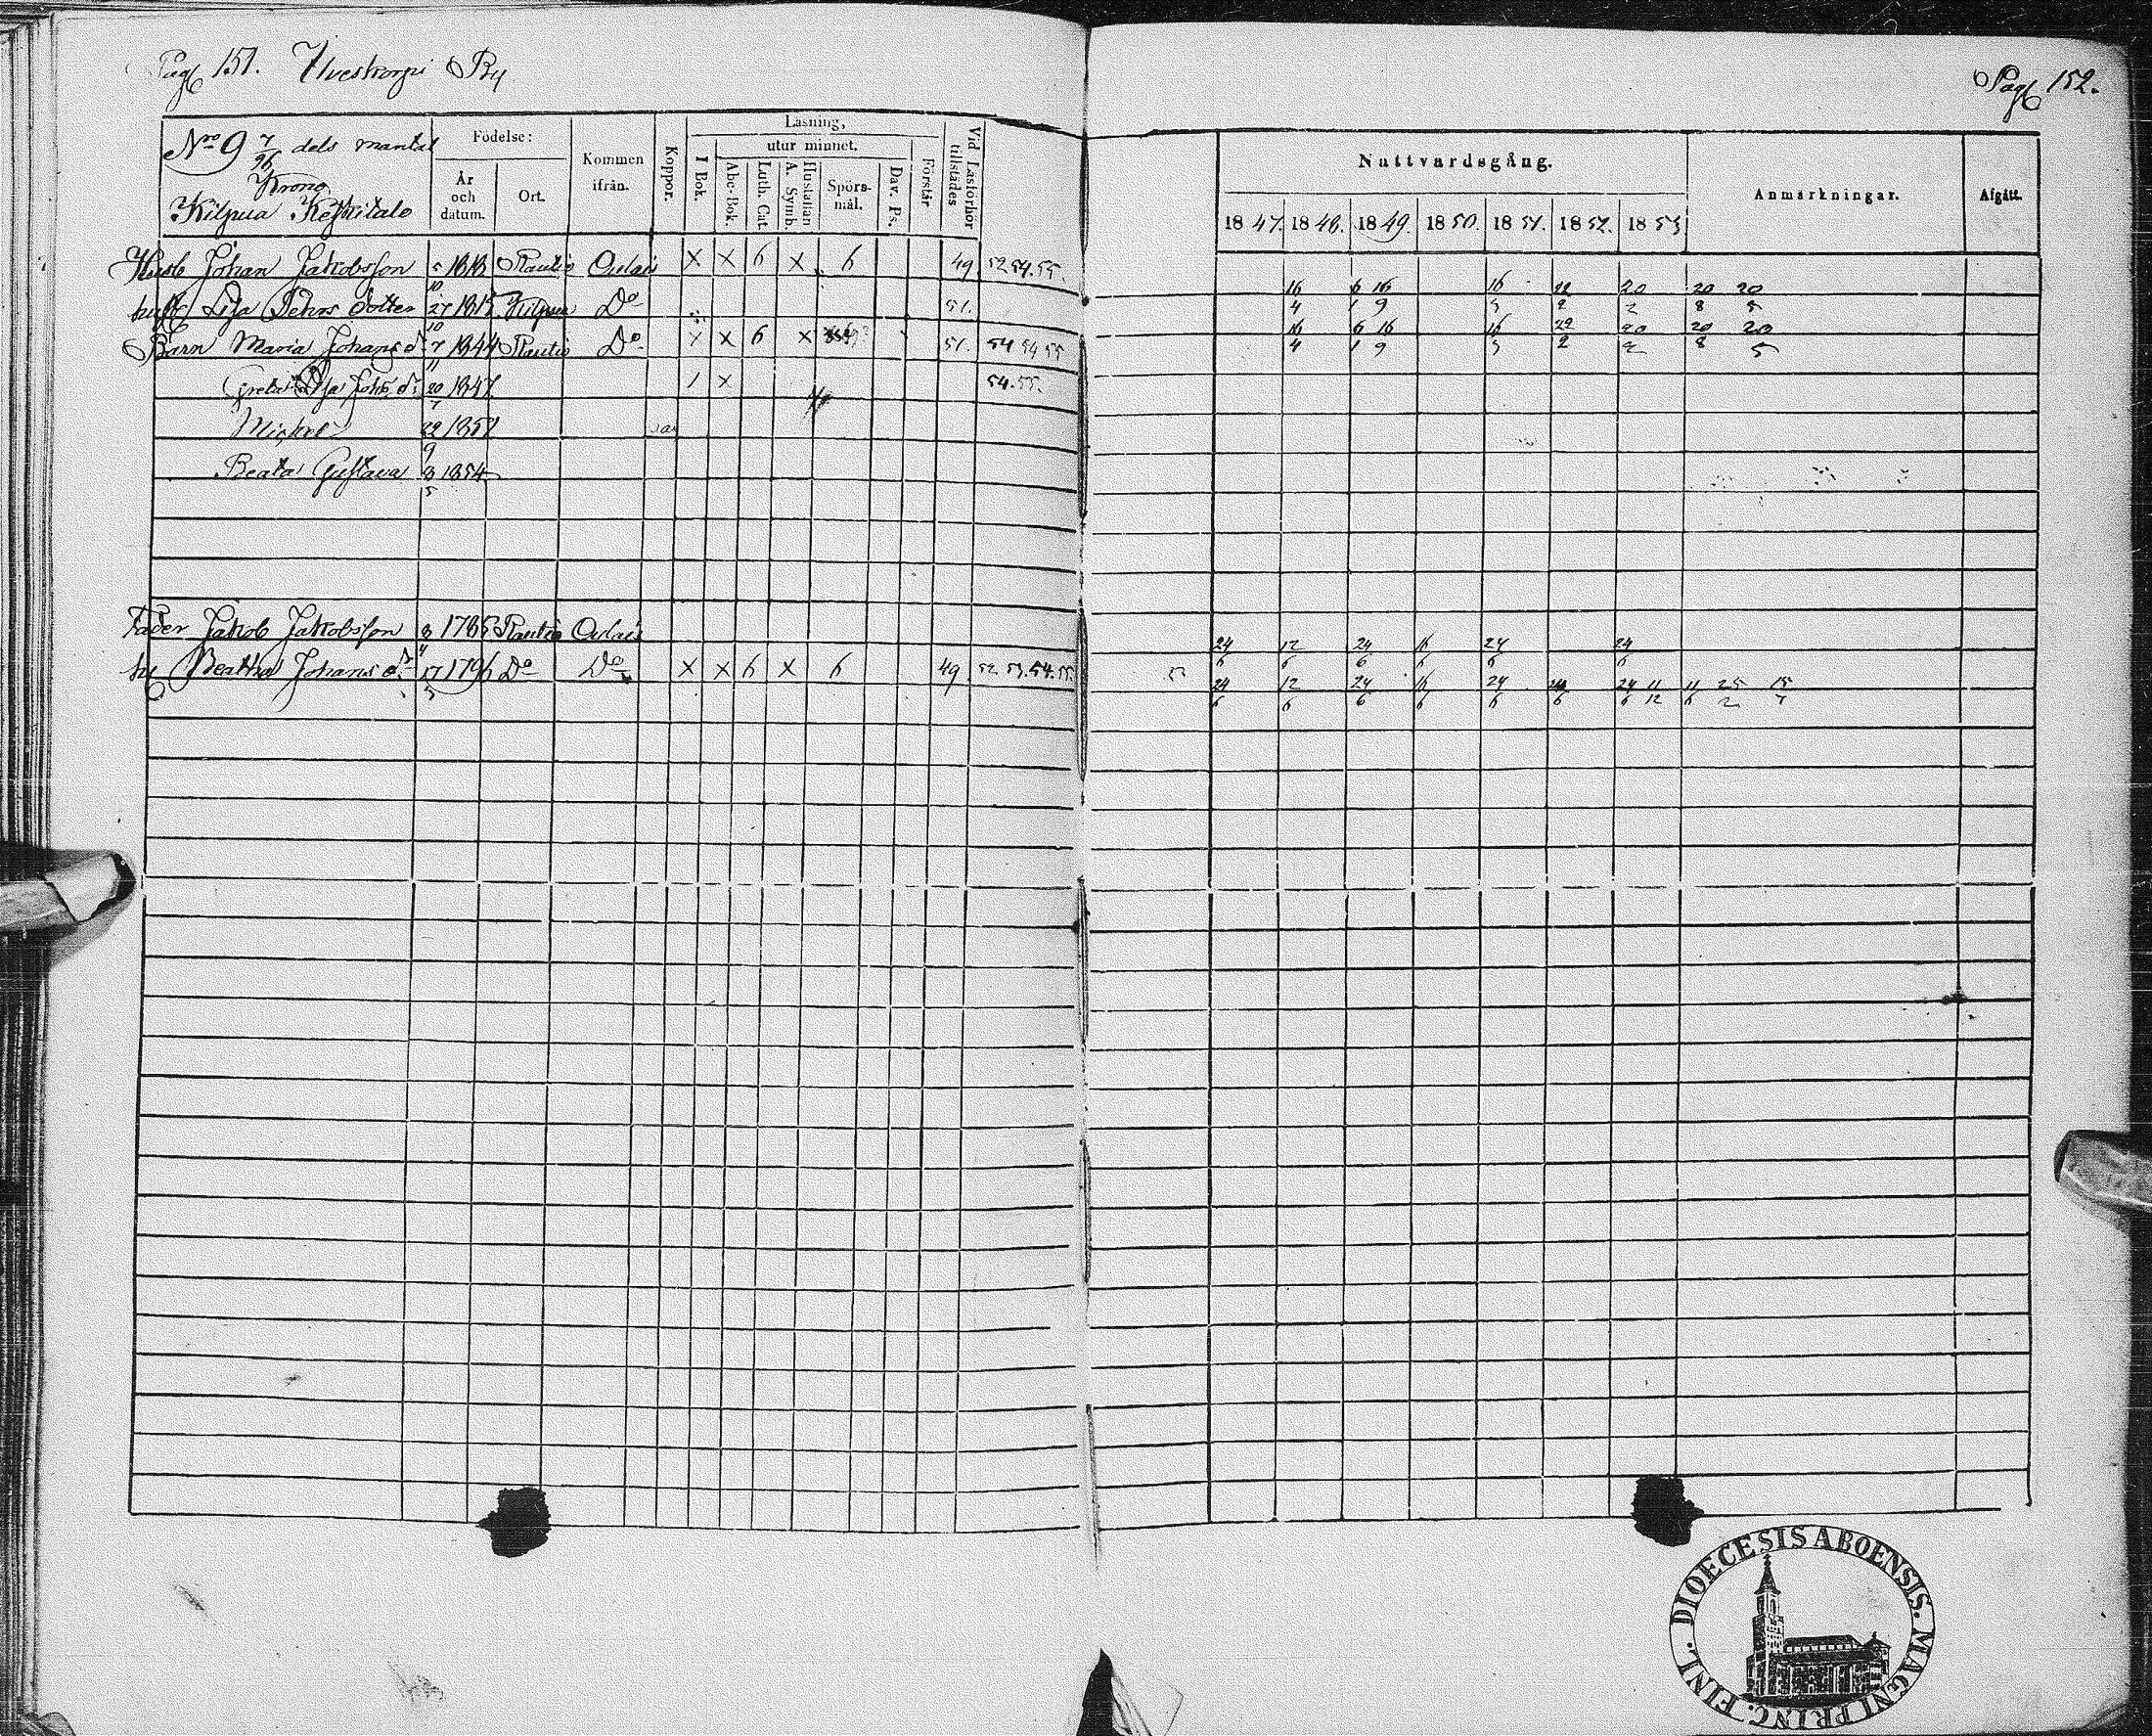 Pag 151. Ilveskorpi By
Pag 152.
No 9 7/96 dels mantal
Krono
Kilpua Keskitalo
Födelse:
År och datum.
Ort.
Kommen ifrån.
Koppor.
Läsning,
I Bok.
utur minnet.
Abc-Bok.
Luth. Cat.
Hustaflan A. Symb.
Spörsmål.
Dav. Ps.
Förstår
Vid Läsförhör tillstädes
Nattvardsgång.
1847. 1848. 1849. 1850. 1851. 1852. 1853
Anmärkningar.
Afgått.
Husb Johan Jakobsson 5/10 1818 Rautio Oulais X X 6 X 6 49. 52 54. 55. 16/4 6/1 16/9 16/5 22/2 20/2 20/8 20/5
hust Lisa Pehrs dotter 27/10 Kilpua Do 51. 16/4 6/1 16/9 16/5 22/2 20/2 20/8 20/5
Barn Maria Johans dr 7/11 1844 Rautio Do X X 6 X 51. 54 54 55
Greta Lisa Johs dr 20/7 1847. 1 X 54. 55.
Michel 22/9 1851
Beata Gustava 3/5 1854
Fader Jakob Jakobsson 8/4 Rautio Oulais 24/6 12/6 24/6 16/6 24/6 24/6
hu Beatha Johans dr 17/5 1796 Do Do X X 6 X 6 49. 52. 53. 54. 55 24/6 12/6 24/6 16/6 24/6 24/6 24/6 11/12 11/6 25/2 15/7
DIOECESIS ABOENSIS. MAGNI PRINC. FINL.